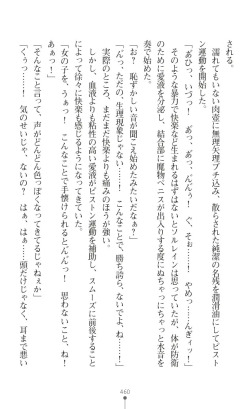 される。
濡れてもいない肉壺に無理矢理ブチ込み、散らされた純潔の名残を潤滑油にしてピスト
ン運動を開始した。
「あひっ、いづっ！　あっ、あっ、だんぅっ！　く、そぉ……！　やめっ……んぎィッ！」
そのような暴力で快楽など生まれるはずはないとソルレインは思っていたが、体が防衛
のために愛液を分泌し、結合部に寵物ペニスが出入りする度にぬちゃにっちゃと水音を
奏で始めた。
「お？　恥ずかしい音が聞こえ始めたみたいだなぁ？」
「んっ、ただの、生理現象じゃない……！　こんなことで、勝ち誇、らないで……！」
実際のところ、まだまだ快楽よりも痛みが強い。
しかし、血液よりも粘性の高い愛液がピストン運動を補助し、スムーズに前後すること
によって徐々に快楽も感じるようになってきていた。
「女の子を、うぁっ！　こんなことで手懐けられるとんんっ！　思わないこと、ね！
あぁっ！」
「そんなこと言って、声がどんどん色っぽくなってきてるじゃねぇか」
「くぅっ……！　気のせいじゃ、ないの？　はぁ、はぁ……！頭だけじゃなく、耳まで悪い
460